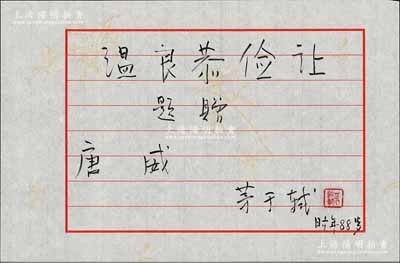 温良恭俭让
题赠
唐威
茅于轼
时年88岁
上海阳明拍卖
上海阳明拍卖